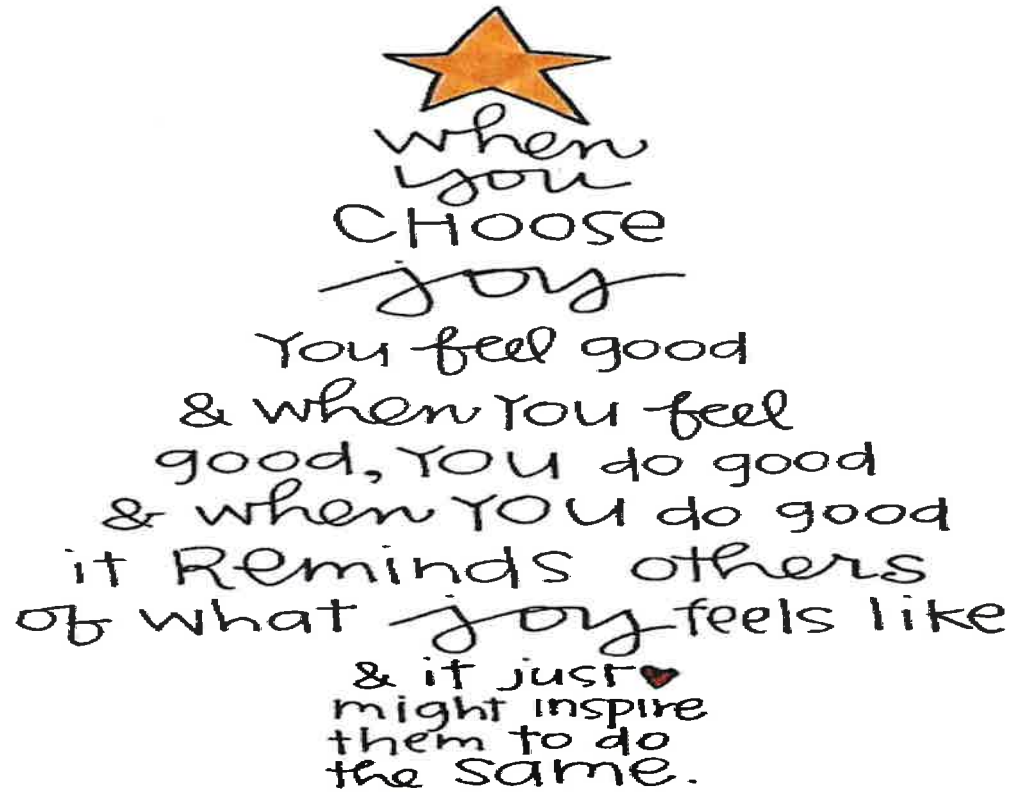 when
you
CHOOSE
joy
You feel good
& when you feel
good, you do good
& when you do good
it Reminds others
of what joy feels like
& it just
might inspire
them to do
the same.